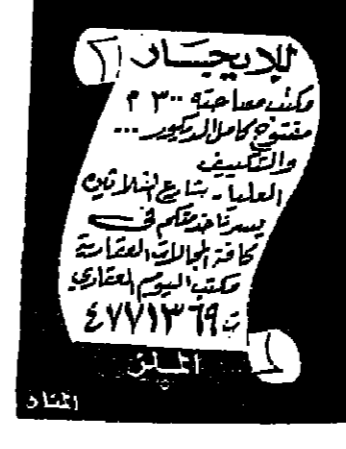 للإيجـــار
مكتب مساحته ٣٠٠ م
مفتوح كامل الديكور ...
والتكييف
العليا - بشارع الثلاثين
يسرنا خدمتكم في
كافة المجالات العقارية
مكتب اليوم العقاري
ت ٤٧٧١٣٦٩
الملز
المناد